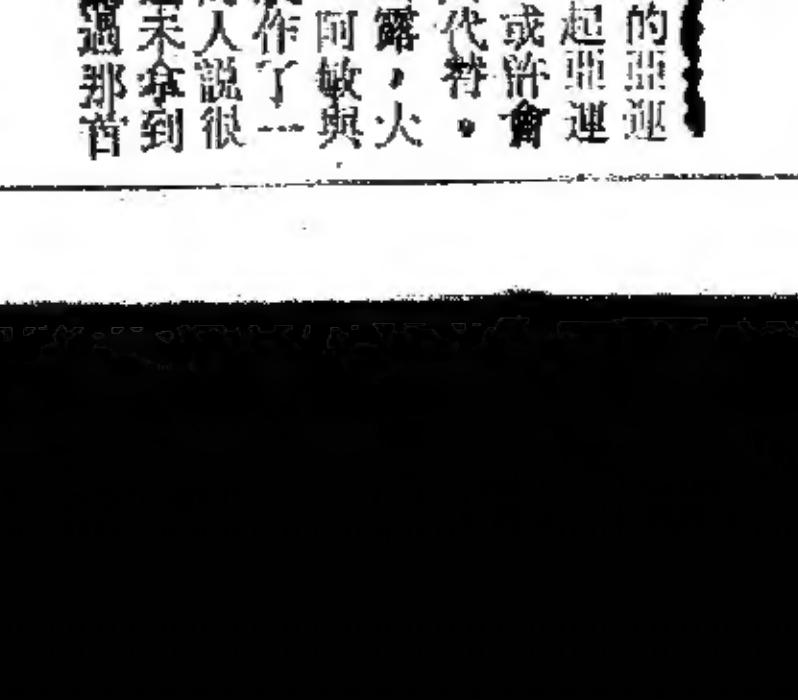 的亞運
起亞運
或許會
代替。
露，火
阿敏與
作了一
人說很
未拿到
過那首